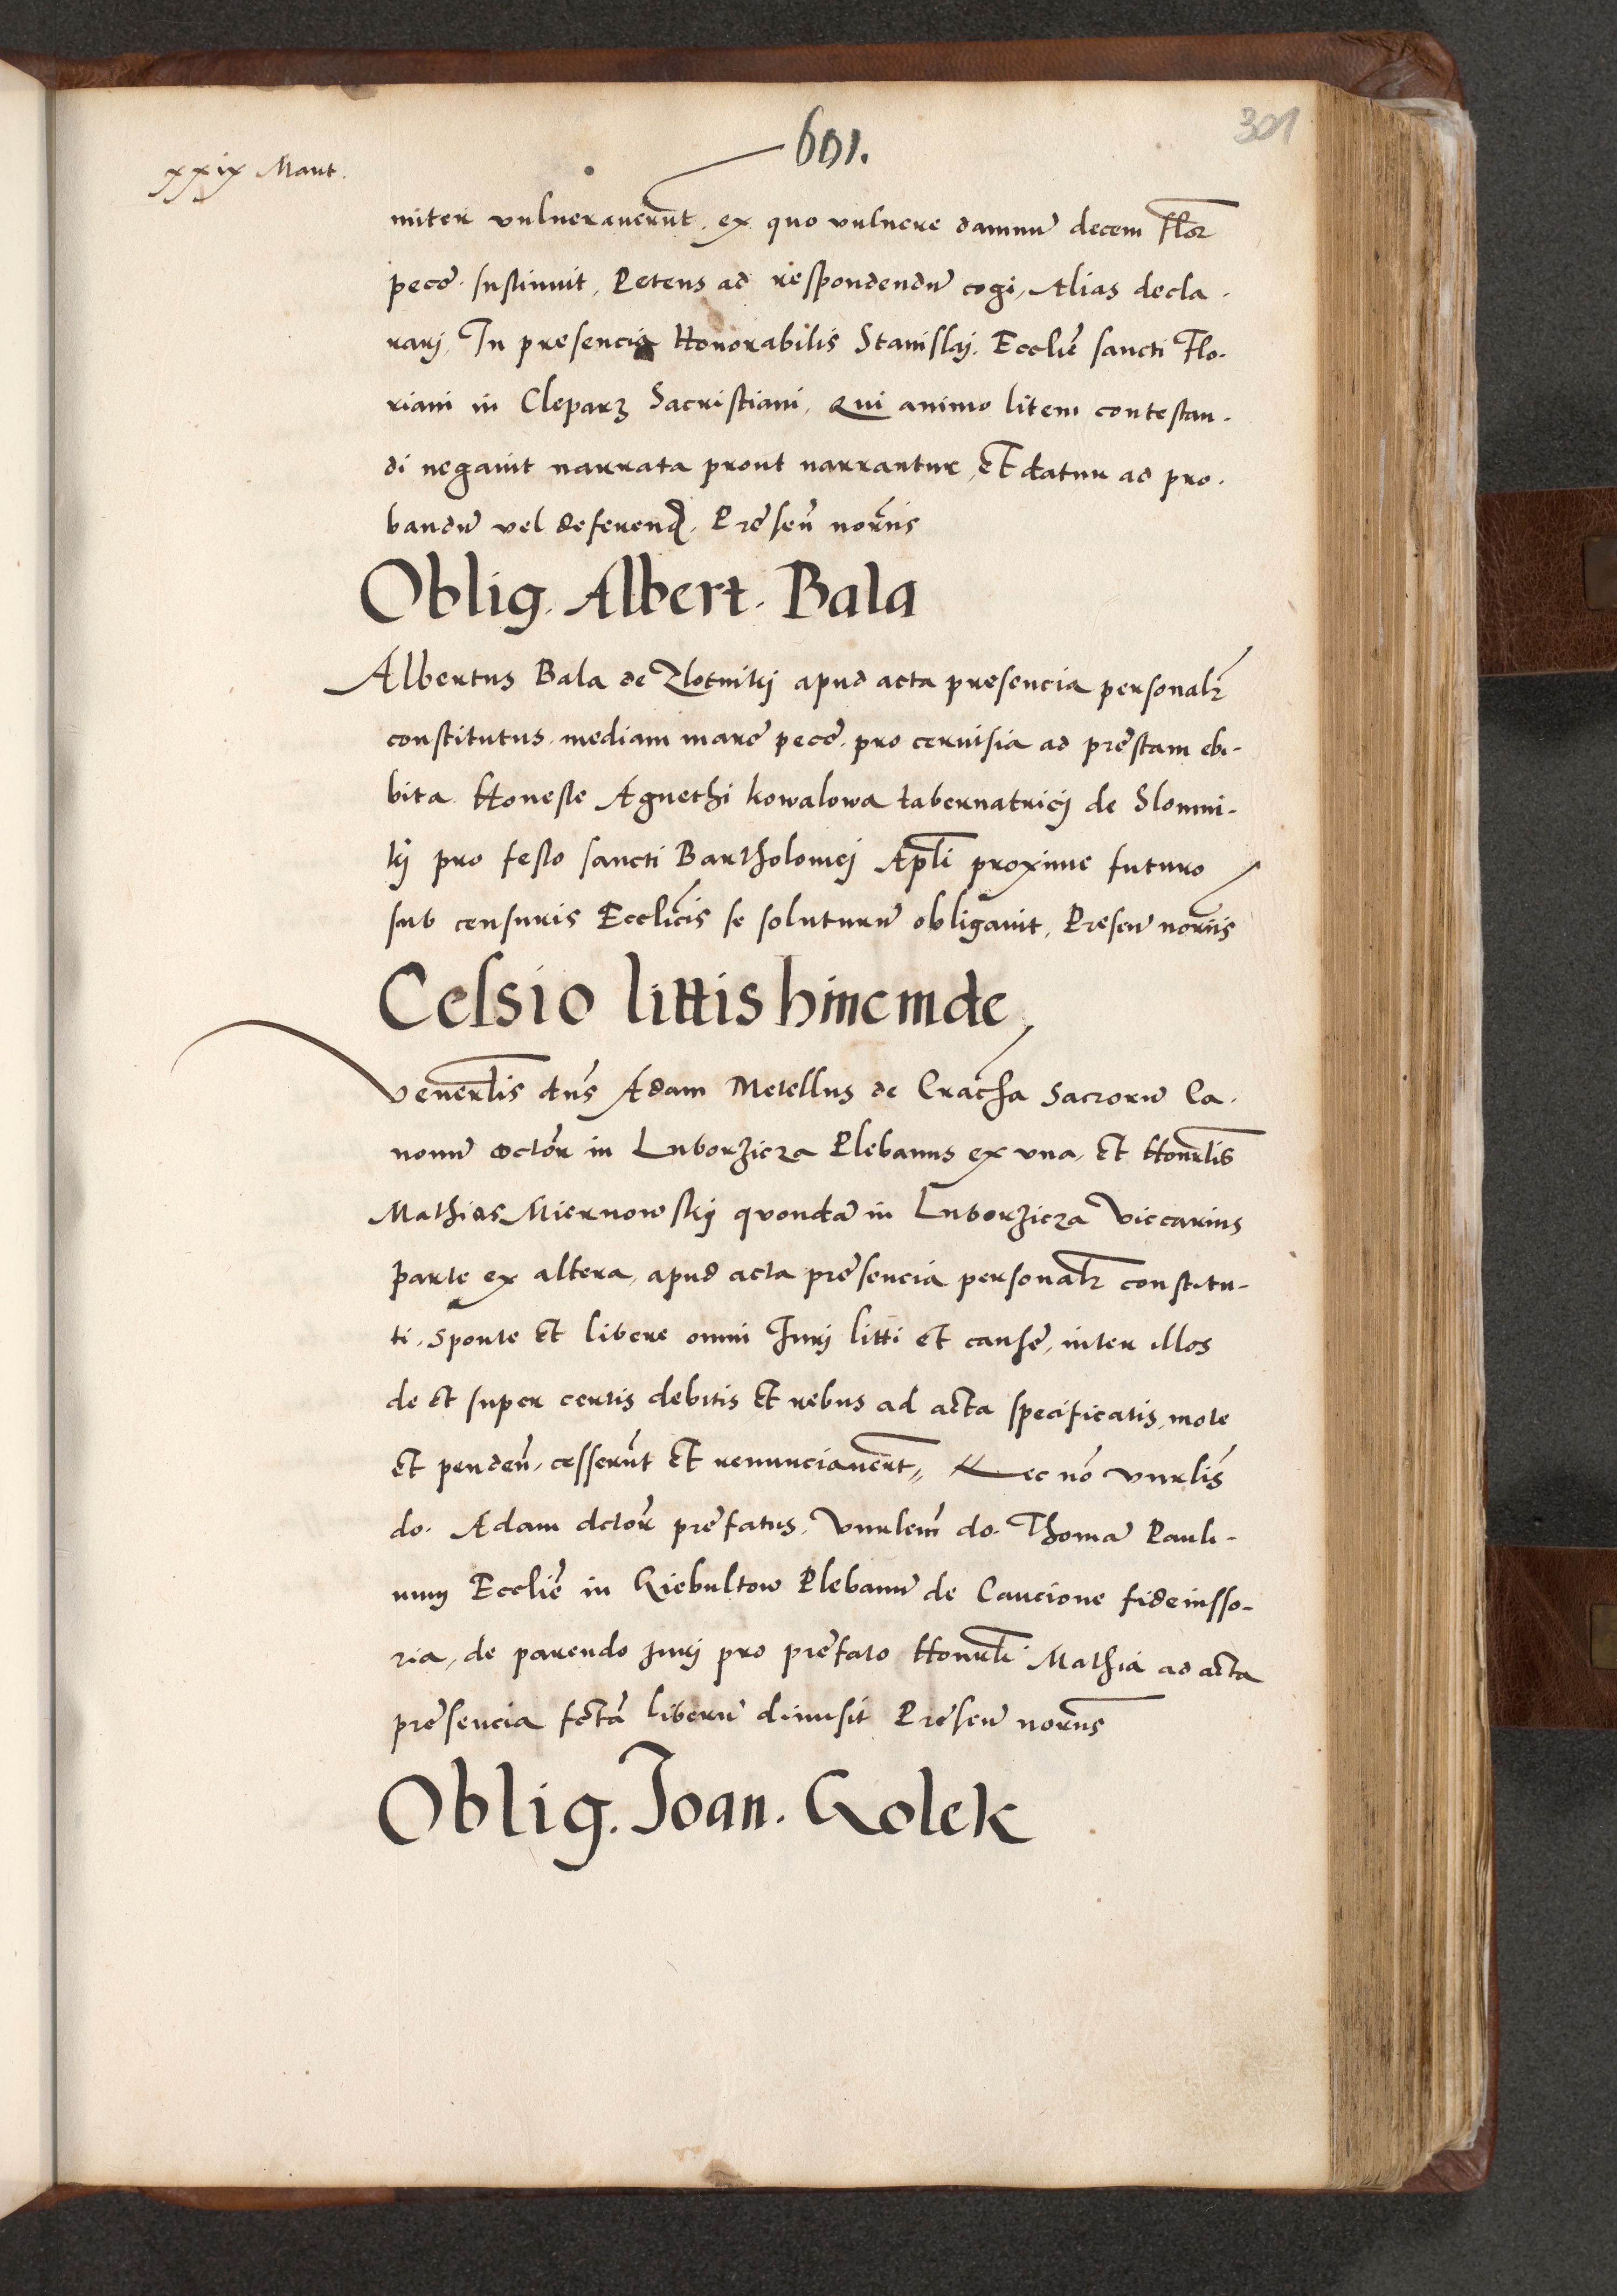 601.
301
xxix Maut.
miter vulneraverut. ex quo vulnere damnu decem flor
pecc. sustinuit, Petens ad respondendu cogi, Alias decla.
rarj, In presencia Honorabilis Stanislaj. Ecclie sancti Flo.
riani in Cleparz Sacristiani, Qui animo litem contestan.
di negavit narrata prout narrantur, Et datur ad pro.
bandu vel deferend. Presen noriis
Oblig. Albert. Bala
Albertus Bala de Zlotnikj apud acta presencia personalr
constitutus. mediam marc pecc. pro cervisia ad prestam ebi-
bita. Honeste Agnethi kowalowa tabernatricj de Slomni-
kj pro festo sancti Bartholomej Apli proxime futuro
sub censuris Ecclicis se soluturu obligavit, Presen noriis
Celsio littis hinc inde
Venerlis dns Adam Metellus de Cracha Sacroru Ca.
nonu doctor in Luborzicza Plebanus ex una, Et Honrlis
Mathias Miernowskij quonda in Luborzicza Viccarius
parte ex altera, apud acta presencia personalr constitu-
ti. sponte Et libere omni Jurj litti et cause, inter illos
de et super certis debitis Et rebus ad acta specificatis, mote
et penden, cesserut Et renunciavert, Nec no vnrlis
do. Adam dctor prefatus. Vnrlem do. Thoma Pauli-
num Ecclie in Giebultow Plebanu de Caucione fideiusso-
ria, de parendo jurj pro prefato Honrli Mathia ad acta
presencia fcta liberu dimisit Presen noriis
Oblig. Joan. Golek